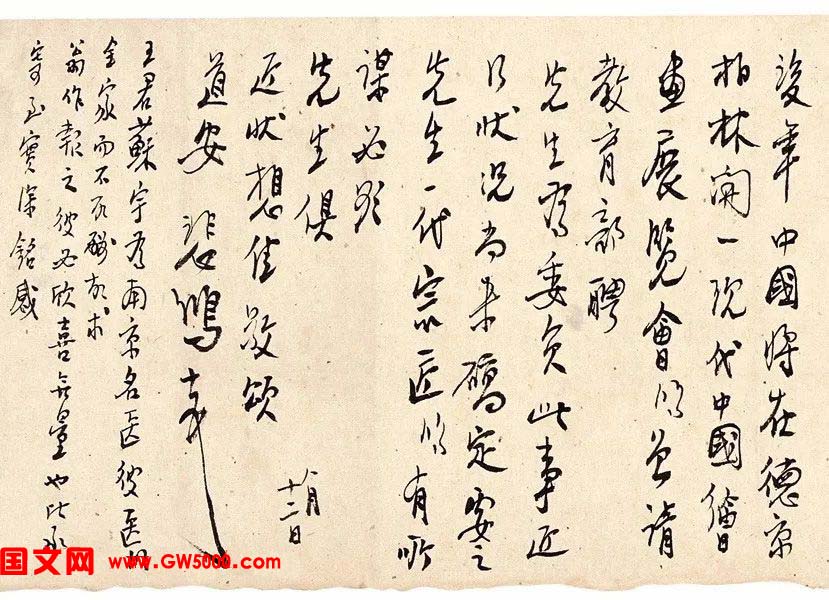 後年中國將在德京
柏林開一現代中國繪
畫展覽會 請
教育部聘
先生為委員此事近
日狀況尚未確定要之
先生一代宗匠 有所
謀必與
先生俱
近狀想佳敬頌
道安 悲鴻
十二日
王君蘇宇為南京名医彼医
全家而不取酬 求
翁作報之彼必欣喜無量也
寄至實深銘感
国文网 www.GW5000.com